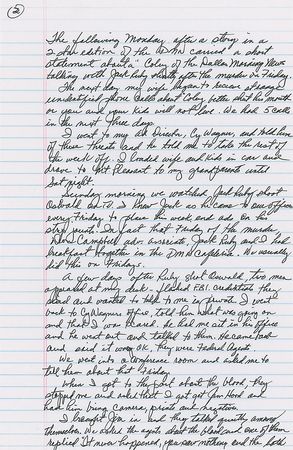 2
The following Monday, after a story in a
2 star edition of the DMN carried a short
statement about "Coley" of the Dallas Morning News
talking with Jack Ruby shortly after the murder on Friday.
The next day my wife began to receive strange
unidentified phone calls about Coley, better shut his mouth
or you and your kids will not live. We had 5 calls
in the next three days.
I went to my Ad Director, Cy Wagner, and told him
of these threats and he told me to take the rest of
the week off. I loaded wife and kids in car and
drove to Mt Pleasant to my grandparents until
Sat night.
Sunday morning we watched Jack Ruby shoot
Oswald on TV. I knew Jack as he came to our offices
every Friday to place his week end ads on his
strip joints. In fact that Friday of the murder,
Don Campbell, adv associate, Jack Ruby and I had
breakfast together in the DMN Cafeteria. We usually
did this on Fridays.
A few days after Ruby shot Oswald, two men
appeared at my desk - flashed FBI credentials they
said and wanted to talk to me in private. I went
back to Cy Wagners office, told him what was going on
and that I was scared. He had me sit in his office
and he went out and talked to them. He came back
and said it was OK, they were Federal Agents
We went into a conference room and asked me to
tell them about that Friday.
When I got to the part about the blood, they
stopped me and asked that I get Jim Hood and
have him bring camera, prints and negatives.
I brought Jim in and they talked quietly among
themselves. We asked the agents about the blood and one of them
replied "It never happened, you saw nothing and the both